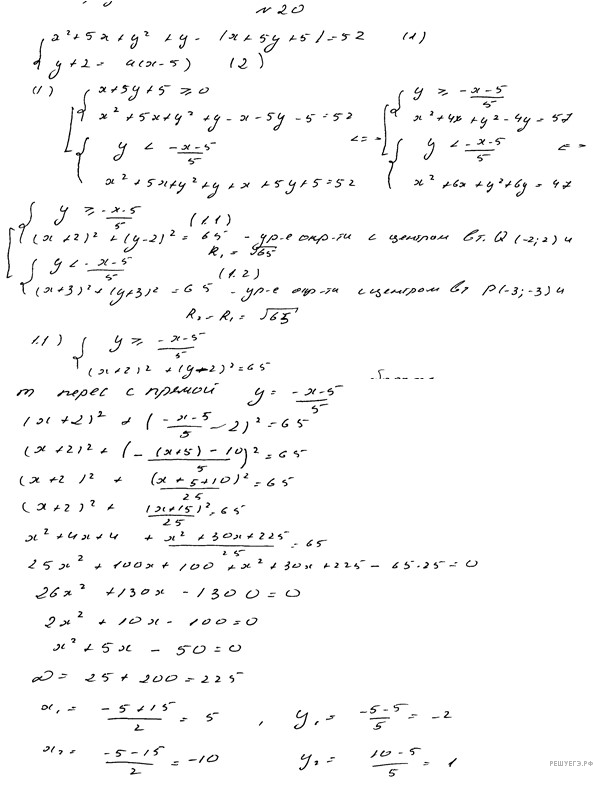 №20
{ x²+5x+y²+y-|x+5y+5|=52 (1)
{ y+2=a(x-5) (2)
(1) [ { x+5y+5≥0
{ x²+5x+y²+y-x-5y-5=52
{ y < (-x-5)/5
{ x²+5x+y²+y+x+5y+5=52
<=> [ { y ≥ (-x-5)/5
{ x²+4x+y²-4y=57
{ y < (-x-5)/5 <=>
{ x²+6x+y²+6y=47
[ { y ≥ (-x-5)/5 (1.1)
{ (x+2)²+(y-2)²=65 - ур-е окр-ти с центром в т. Q(-2;2) и R₁=√65
{ y < (-x-5)/5 (1.2)
{ (x+3)²+(y+3)²=65 - ур-е окр-ти с центром в т P(-3;-3) и
R₂=R₁=√65
1.1) { y ≥ (-x-5)/5
{ (x+2)²+(y-2)²=65
т перес с прямой y = (-x-5)/5
(x+2)² + ((-x-5)/5 - 2)² = 65
(x+2)² + (-(x+5)-10)/5)² = 65
(x+2)² + (x+5+10)²/25 = 65
(x+2)² + (x+15)²/25 = 65
x²+4x+4 + (x²+30x+225)/25 = 65
25x²+100x+100+x²+30x+225-65·25=0
26x²+130x-1300=0
2x²+10x-100=0
x²+5x-50=0
D=25+200=225
x₁ = (-5+15)/2 = 5 , y₁ = (-5-5)/5 = -2
x₂ = (-5-15)/2 = -10 y₂ = (10-5)/5 = 1
РЕШУЕГЭ.РФ